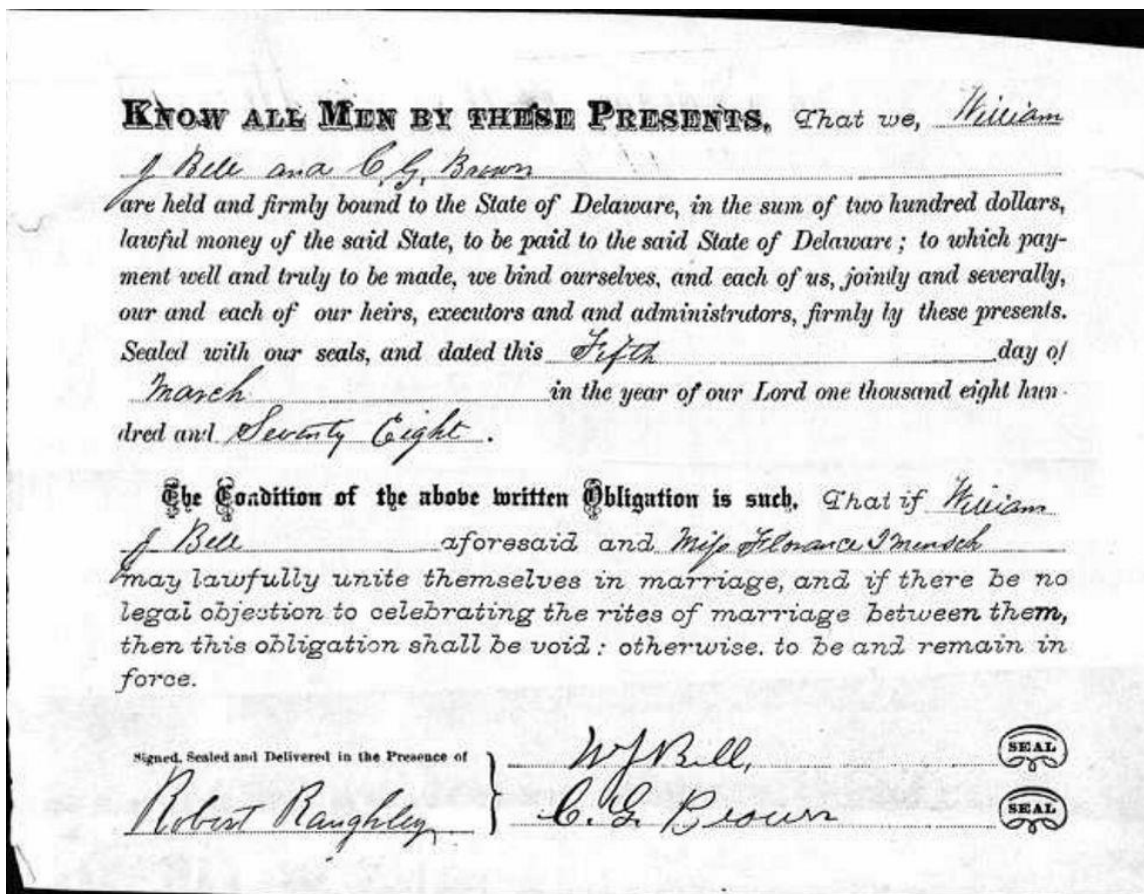 KNOW ALL MEN BY THESE PRESENTS, That we, William
J Bell and C. G. Brown
are held and firmly bound to the State of Delaware, in the sum of two hundred dollars,
lawful money of the said State, to be paid to the said State of Delaware; to which pay-
ment well and truly to be made, we bind ourselves, and each of us, jointly and severally,
our and each of our heirs, executors and and administrators, firmly by these presents.
Sealed with our seals, and dated this Fifth day of
March in the year of our Lord one thousand eight hun-
dred and Seventy Eight.
The Condition of the above written Obligation is such, That if William
J Bell aforesaid and Miss Florance
may lawfully unite themselves in marriage, and if there be no
legal objection to celebrating the rites of marriage between them,
then this obligation shall be void: otherwise. to be and remain in
force.
Signed, Sealed and Delivered in the Presence of
W J Bell, SEAL
Robert Raughley
C. G. Brown SEAL